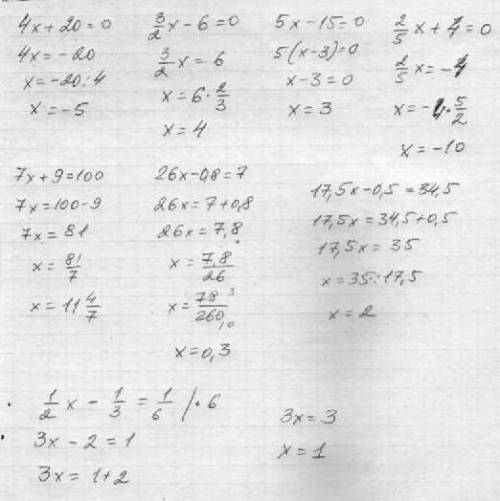 4x+20=0
4x=-20
x=-20:4
x=-5
3/2x-6=0
3/2x=6
x=6·2/3
x=4
5x-15=0
5(x-3)=0
x-3=0
x=3
2/5x+4=0
2/5x=-4
x=-4·5/2
x=-10
7x+9=100
7x=100-9
7x=81
x=81/7
x=11 4/7
26x-0,8=7
26x=7+0,8
26x=7,8
x=7,8/26
x=78 3/260 10
x=0,3
17,5x-0,5=34,5
17,5x=34,5+0,5
17,5x=35
x=35:17,5
x=2
1/2x-1/3=1/6 /·6
3x-2=1
3x=1+2
3x=3
x=1